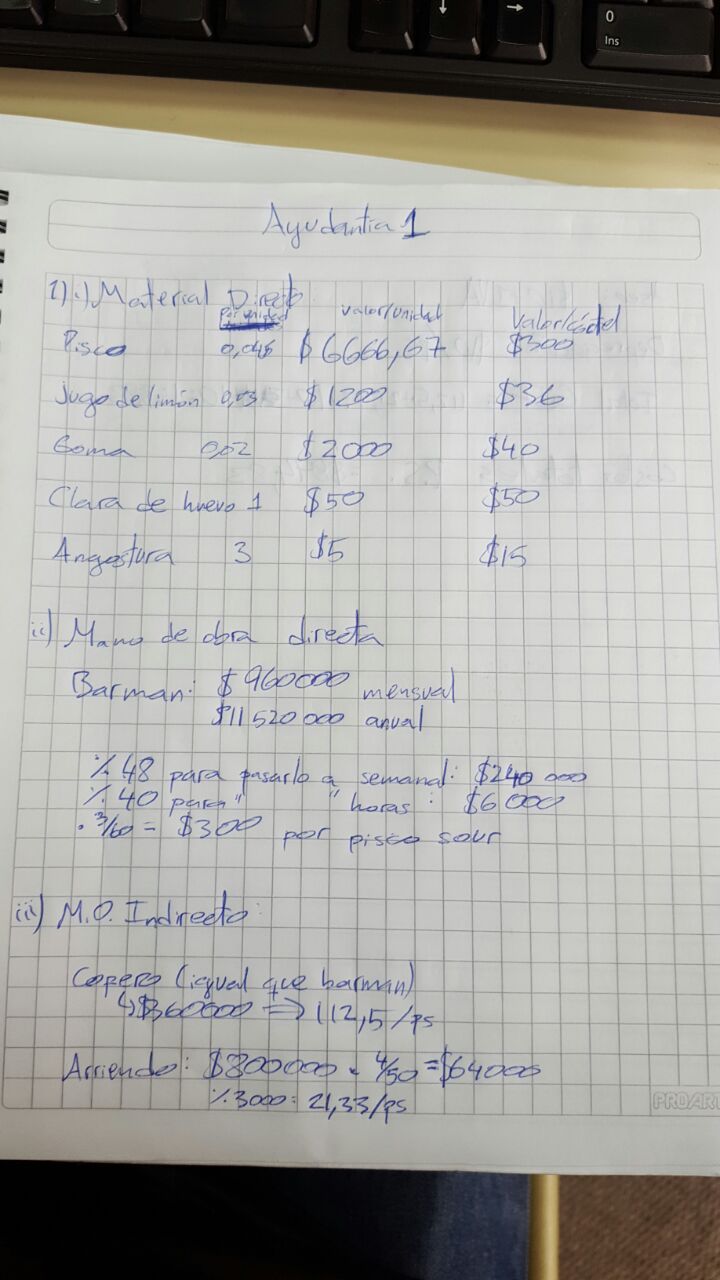 0
Ins
↓
→
Ayudantía 1
1) i) Material Directo:
por unidad valor/unidad valor/cóctel
Pisco 0,045 $6666,67 $300
Jugo de limón 0,03 $1200 $36
Goma 0,02 $2000 $40
Clara de huevo 1 $50 $50
Angostura 3 $5 $15
ii) Mano de obra directa
Barman: $960000 mensual
$11520000 anual
% 48 para pasarlo a semanal: $240 000
% 40 para " " horas: $6000
· 3/60 = $300 por pisco sour
iii) M.O. Indirecto:
Copero (igual que barman)
↳ $360000 => 112,5/ps
Arriendo: $800000 · 4/50 = $64000
% 3000: 21,33/ps
PROART